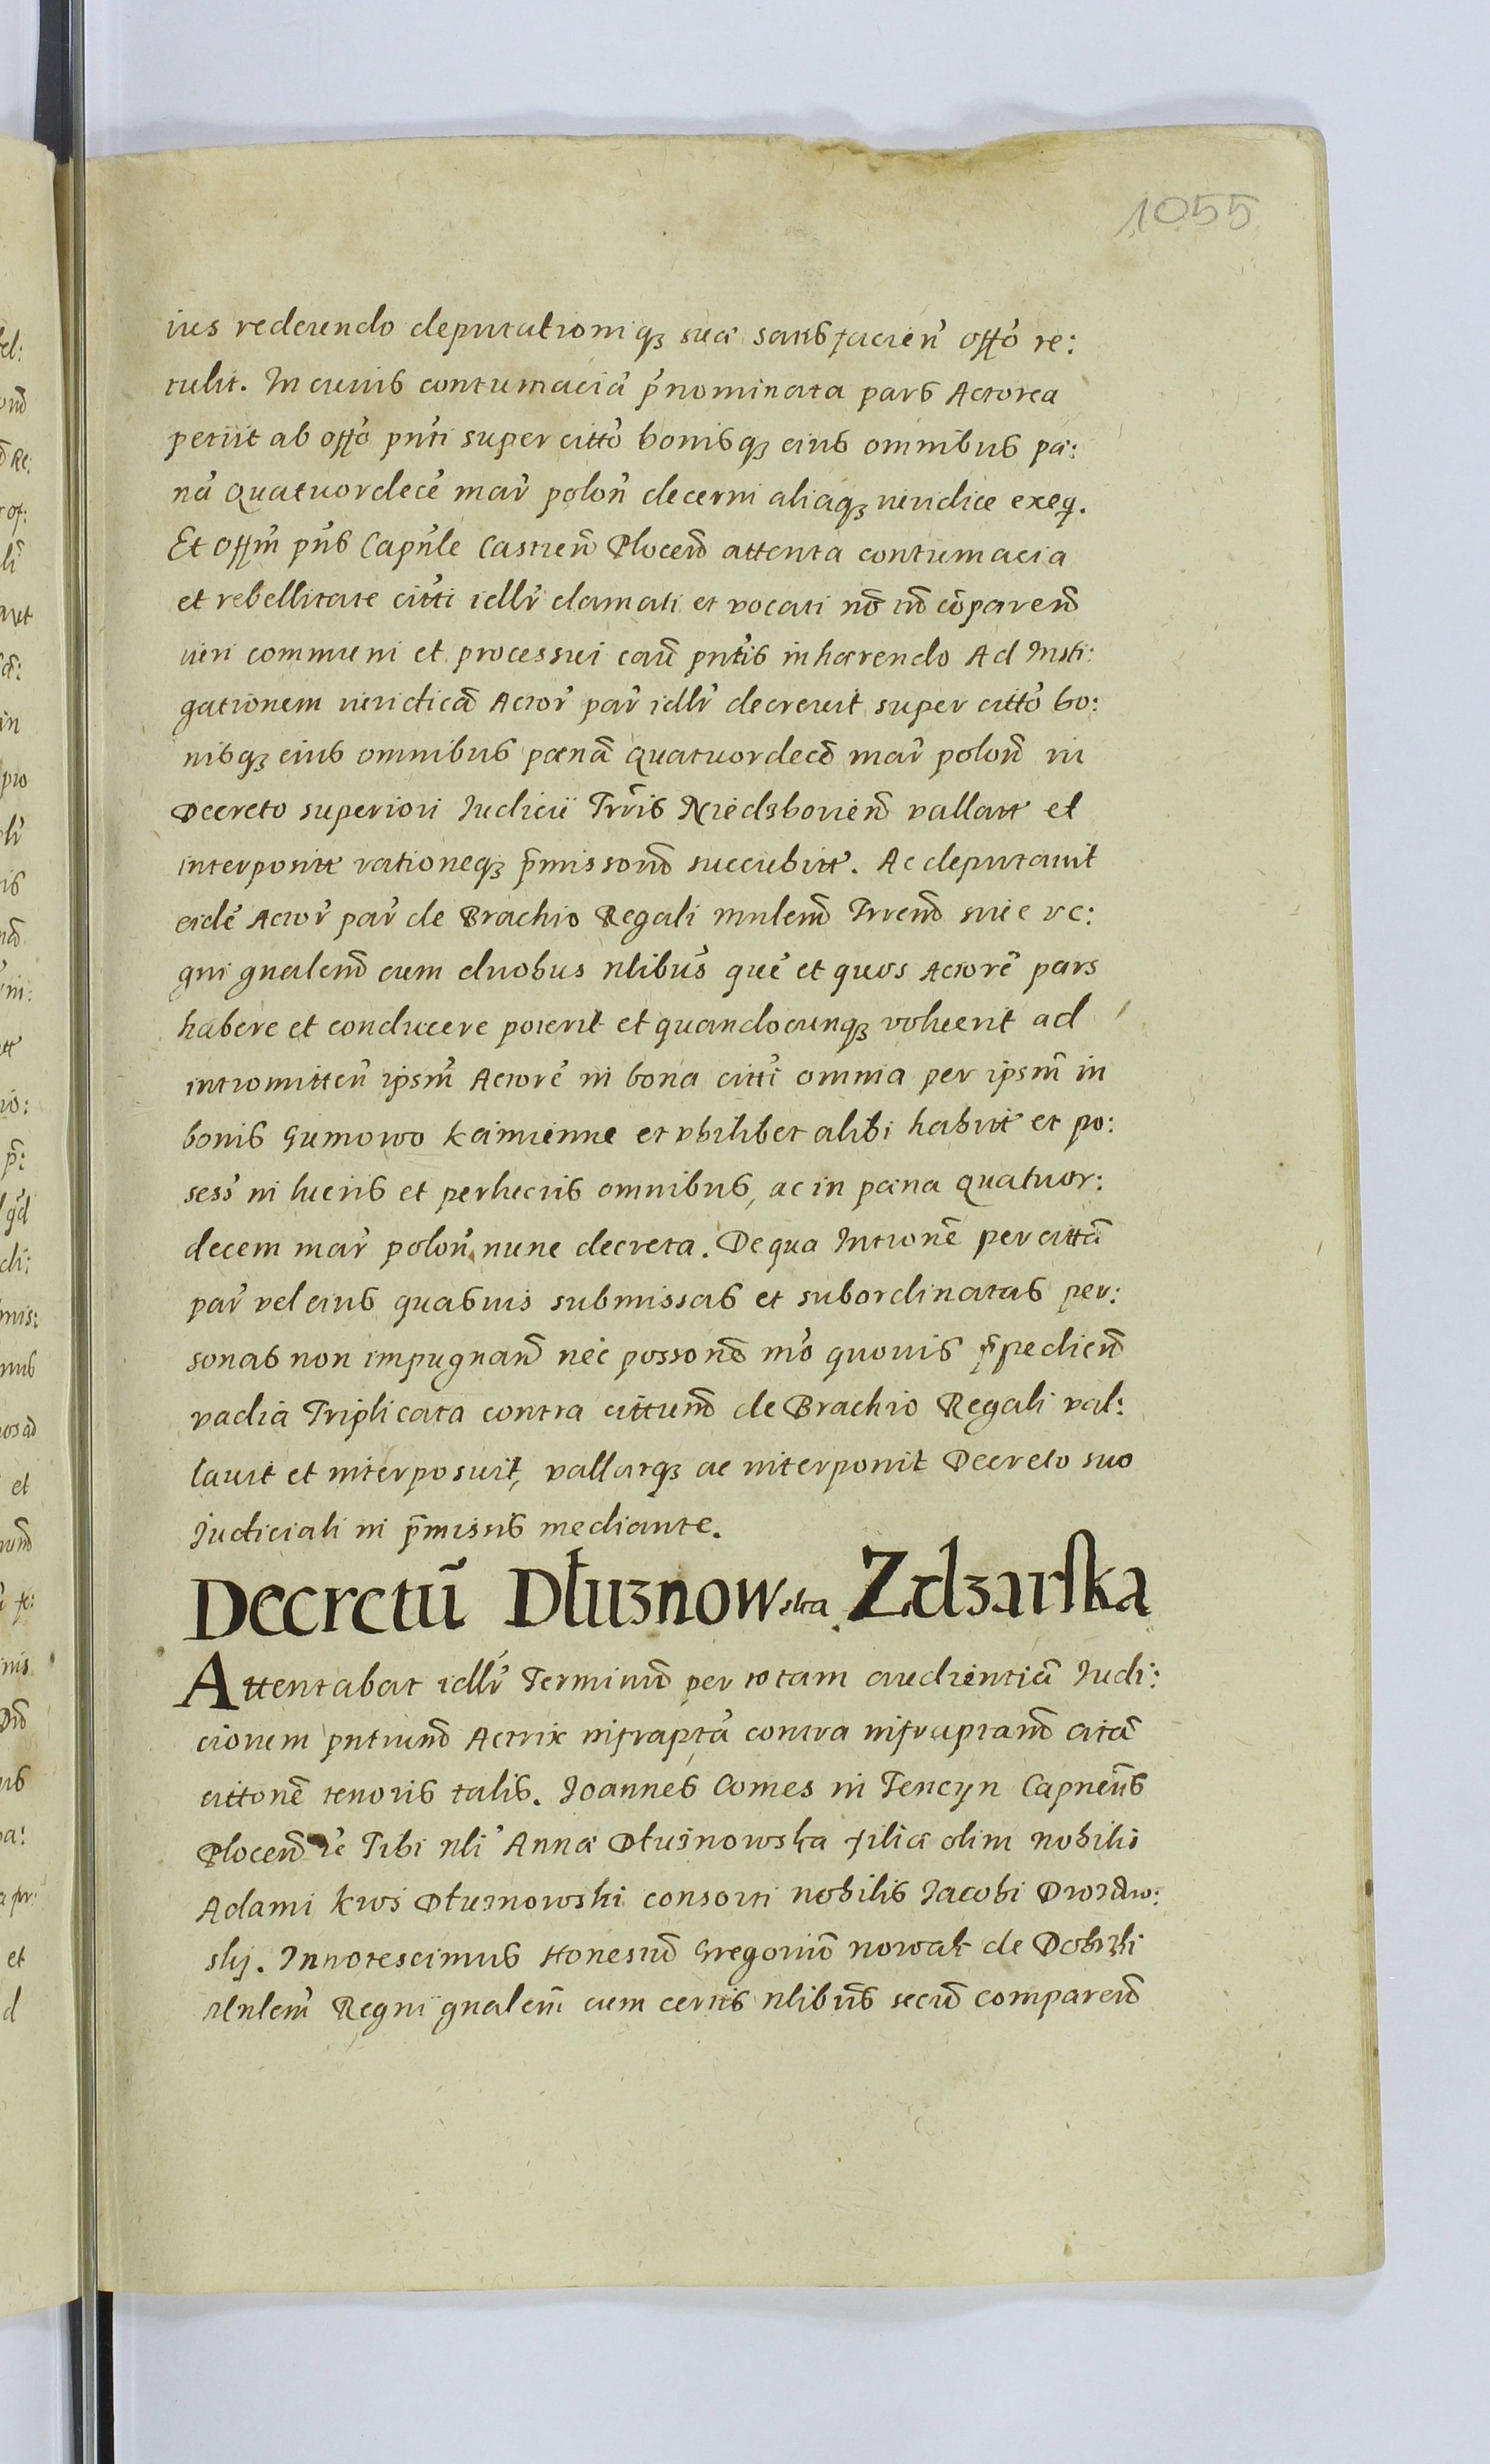 1055
ius reddendo deputationiq3 suæ satisfacien̄ offõ re:
tulit. In cuius contumaciã p̃nominata pars Actorea
petiit ab offõ pñti super cittõ bonisq3 eius omnibus pæ:
nã quatuordecẽ mar̃ polon̄ decerni aliaq3 iuridice exeq.
Et Offm̃ pñs Capñle Castren̄ Plocen̄ attenta contumacia
et rebellitate citti idlr̃ clamati et vocati nõ tñ cõparen̄
iuri communi et processui cau̅ pñtis inhærendo Ad Insti:
gationem iuridicã Actor̃ par̃ idlr̃ decreuit super cittõ bo:
nisq3 eius omnibus pænã quatuordecẽ mar̃ polon̄ in
Decreto superiori Iudicii Trr̃is Niedzborien̄ vallatt̃ et
interpositt̃ rationeq3 p̃missorũ succubitt̃. Ac deputauit
eidẽ Actor̃ par̃ de Brachio Regali mñlem̄ Trren̄ siue re:
gni gnalem̄ cum duobus nlibus̃ quẽ et quos Actorẽ pars
habere et conducere poterit et quandocunq3 voluerit ad
intromitten̄ ipsm̃ Actorẽ in bona citti omnia per ipsm̃ in
bonis Gumowo Kamienne et vbilibet alibi habitt̃ et po:
sess̃ in lucris et perlucris omnibus, ac in pæna quatuor:
decem mar̃ polon̄ nunc decreta. De qua Introne̅ per cittã
par̃ vel eius quasuis submissas et subordinatas per:
sonas non impugnan̄ nec possonẽ mõ quouis p̃pedien̄
vadia Triplicata contra cittum̄ de Brachio Regali val:
lauit et interposuit, vallatq3 ac interponit Decreto suo
Iudiciali in p̃missis mediante.
Decretũ Dłuznowska Zdzarska
Attentabat idlr̃ Terminũ per totam audientiã Iudi:
ciorum pñtium̄ Actrix infraptã contra infraptam̄ citã
cittonẽ tenoris talis. Joannes Comes in Tencyn Capneũs
Plocen̄ Tibi nli Annæ Dłuznowska filiæ olim nobilis
Adami Dłuznowski consorti nobilis Jacobi
skj. Innotescimus Honestũ Gregoriũ Nowak de
Mnlem̃ Regni gnalem̃ cum certis nlibus̃ secũ comparen̄